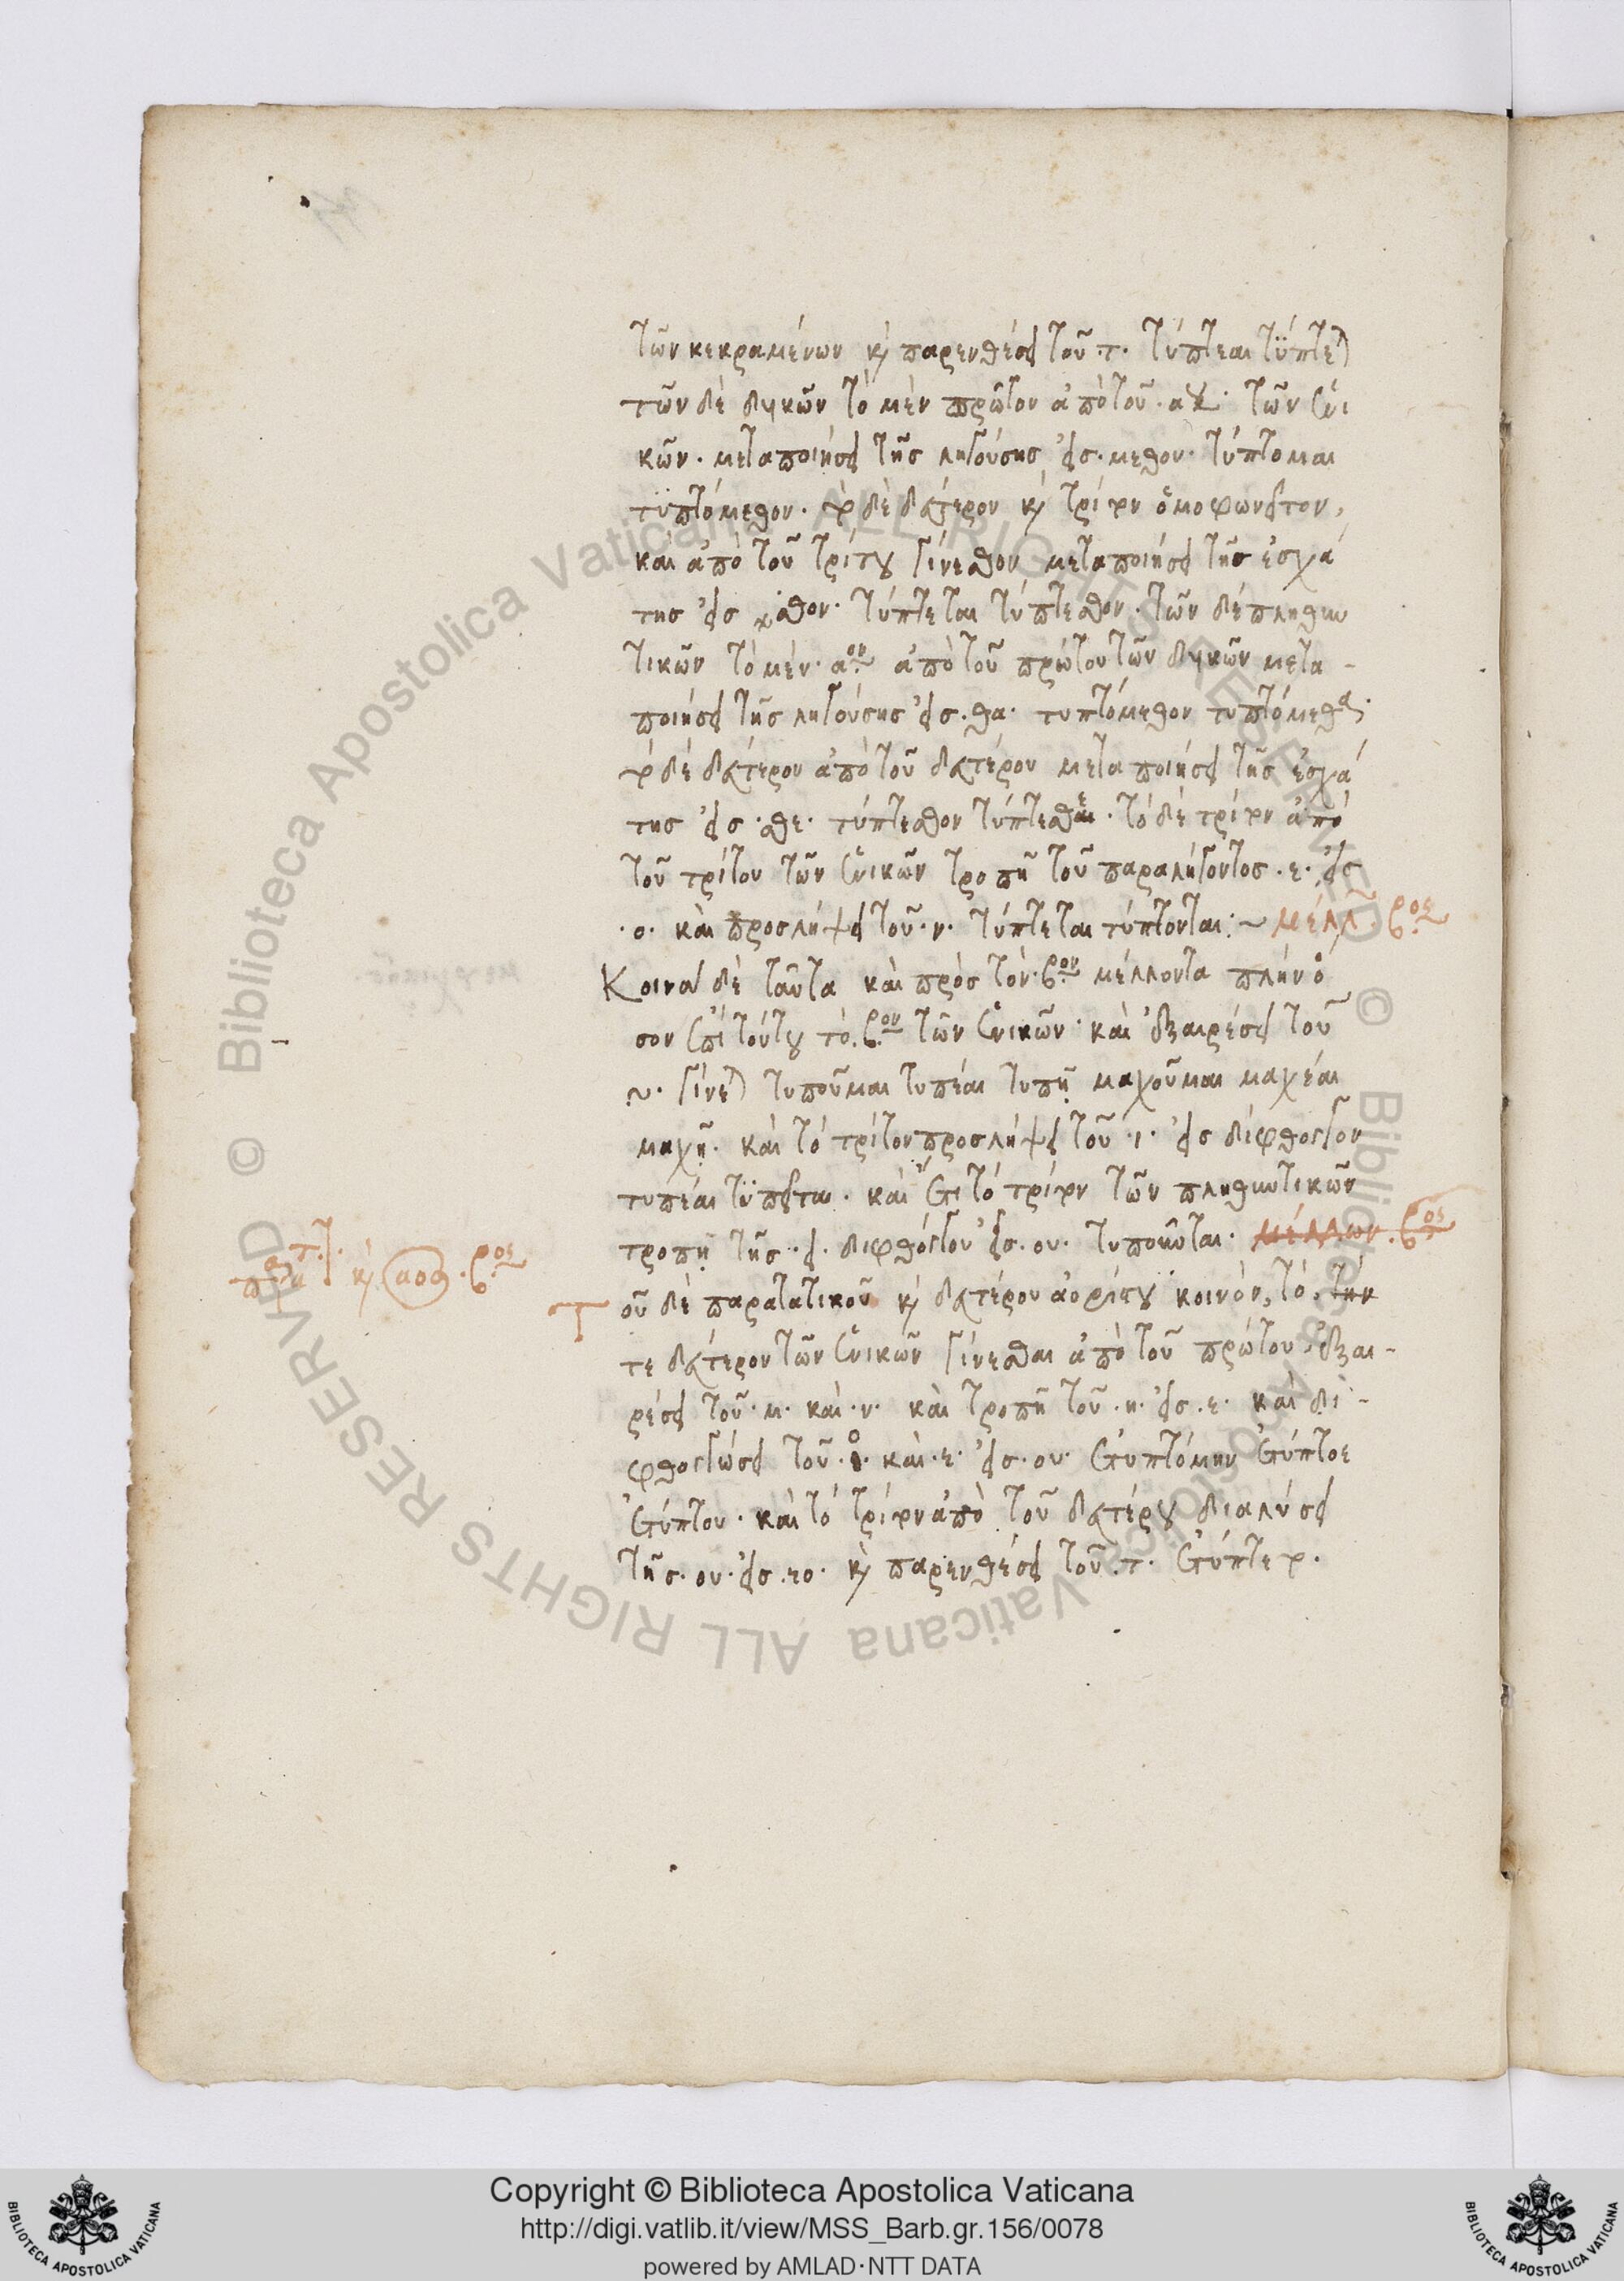 τῶν κεκραμένων κ παρενθέσει τοῦ .τ. τύπτεαι τύπτεται
τῶν δὲ δυϊκῶν τὸ μὲν πρῶτον ἀπὸ τοῦ .αου. τῶν ἑνι
κῶν. μεταποιήσει τῆς ληγούσης εἰς .μεθον. τύπτομαι
τυπτόμεθον. τὸ δὲ δεύτερον κ τρίτον ὁμοφωνεῖτον,
καὶ ἀπὸ τοῦ τρίτου γίνεσθον μεταποιήσει τῆς ἐσχά
της εἰς σθον. τύπτεται τύπτεσθον. τῶν δὲ πληθυν
τικῶν τὸ μὲν .αον ἀπὸ τοῦ πρώτου τῶν δυϊκῶν μετα-
ποιήσει τῆς ληγούσης εἰς .θα. τυπτόμεθον τυπτόμεθα.
τὸ δὲ δεύτερον ἀπὸ τοῦ δευτέρου μεταποιήσει τῆς ἐσχά
της εἰς .σθε. τύπτεσθον τύπτεσθε. τὸ δὲ τρίτον ἀπὸ
τοῦ τρίτου τῶν ἑνικῶν τροπῇ τοῦ παραλήγοντος .ε. εἰς
.ο. καὶ προσλήψει τοῦ .ν. τύπτεται τύπτονται: ~ μέλλ. βος
Κοινὰ δὲ ταῦτα καὶ πρὸς τὸν .βον μέλλοντα πλὴν ὅ
σον ἐπὶ τούτου τὸ .βον τῶν ἑνικῶν. καὶ ἐξαιρέσει τοῦ
υ. γίνεται τυποῦμαι τυπέαι τυπῇ μαχοῦμαι μαχέαι
μαχῇ. καὶ τὸ τρίτον προσλήψει τοῦ .ι. εἰς δίφθογγον
τυπέαι τυπεῖται. καὶ ἔτι τὸ τρίτον τῶν πληθυντικῶν
τροπῇ τῆς .ει. διφθόγγου εἰς .ου. τυποῦνται. μέλλων .βος
παρατ. κ αορ .βος
Τοῦ δὲ παρατατικοῦ κ δευτέρου ἀορίστου κοινὸν, τὸ, τήν
τε δεύτερον τῶν ἑνικῶν γίνεσθαι ἀπὸ τοῦ πρώτου, ἐξαι-
ρέσει τοῦ .μ. καὶ .ν. καὶ τροπῇ τοῦ .η. εἰς .ε. καὶ δι-
φθογγώσει τοῦ .ο. καὶ .ε. εἰς .ου. ἐτυπτόμην ἐτύπτοε
ἐτύπτου. καὶ τὸ τρίτον ἀπὸ τοῦ δευτέρου διαλύσει
τῆς .ου. εἰς .εο. κ παρενθέσει τοῦ .τ. ἐτύπτετο.
Copyright © Biblioteca Apostolica Vaticana
http://digi.vatlib.it/view/MSS_Barb.gr.156/0078
powered by AMLAD·NTT DATA